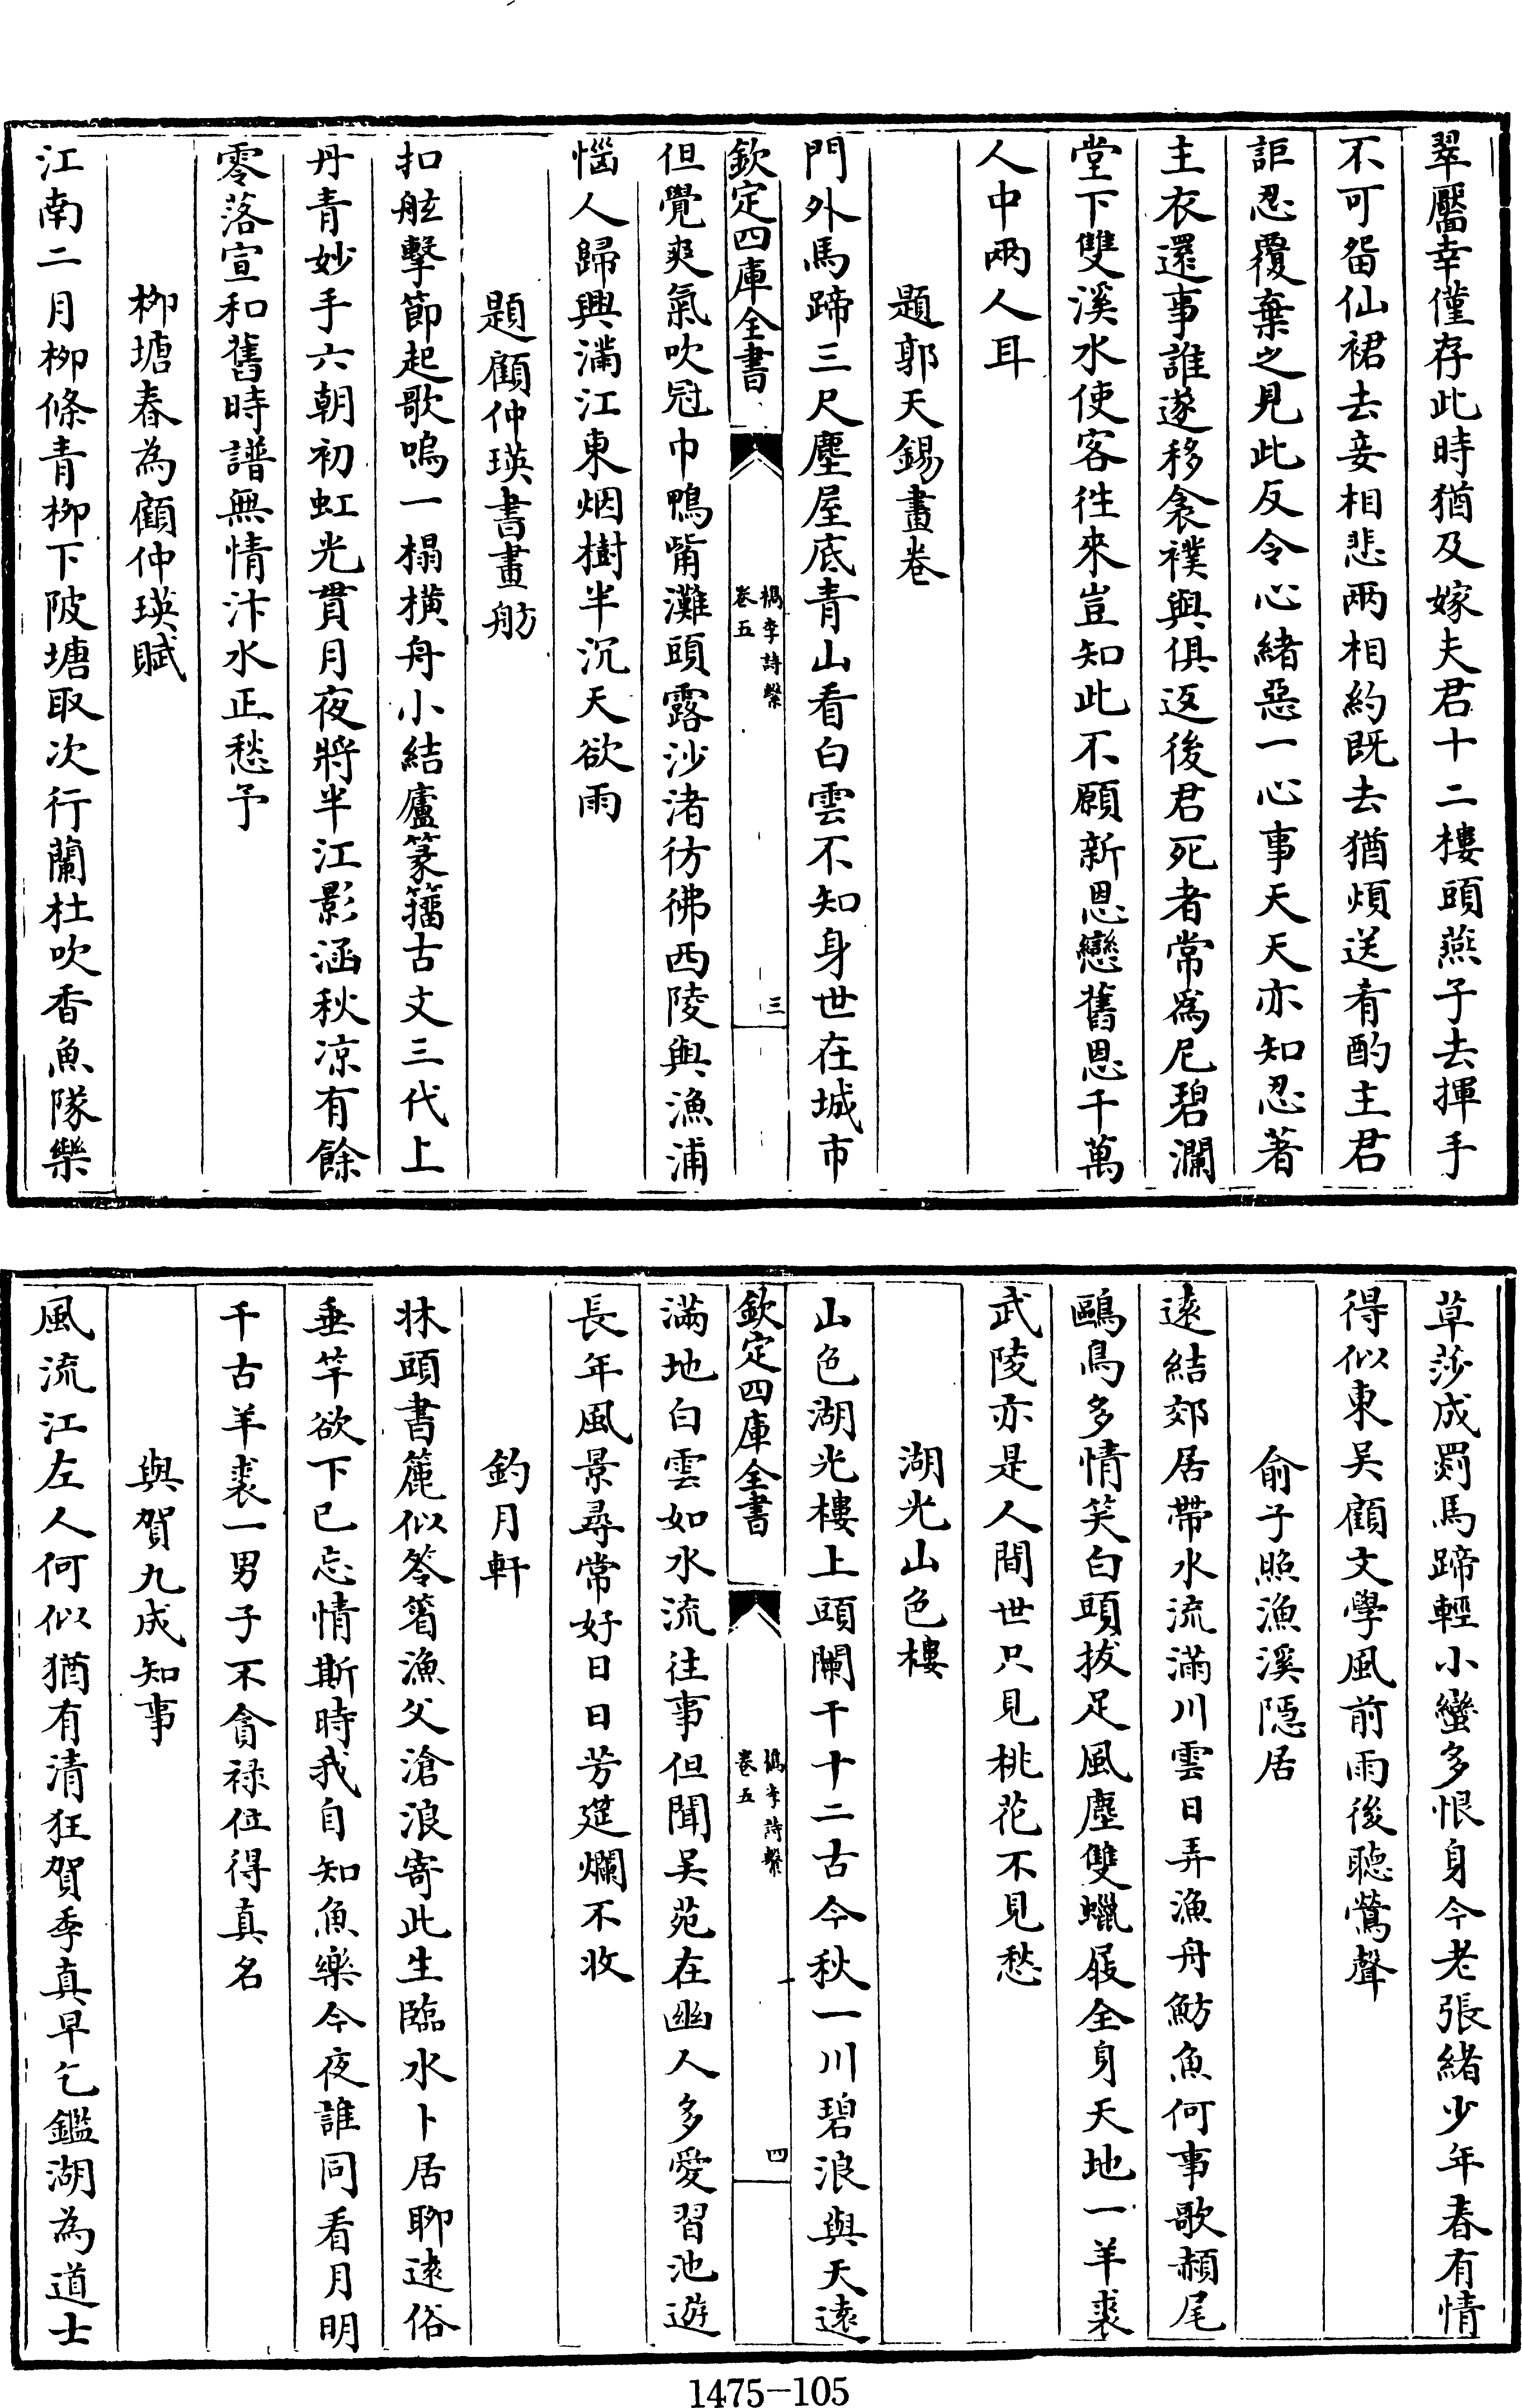 翠靨幸僅存此時猶及嫁夫君十二樓頭燕子去揮手
不可留仙裙去妾相悲兩相約既去猶煩送肴酌主君
詎忍覆棄之見此反令心緒惡一心事天天亦知忍著
主衣還事誰遂移衾襆與俱返後君死者常爲尼碧瀾
堂下雙溪水使客徃來豈知此不願新恩戀舊恩千萬
人中兩人耳
題郭天錫畫卷
門外馬蹄三尺塵屋底青山看白雲不知身世在城市
欽定四庫全書
檇李詩繫
卷五
三
但覺爽氣吹冠巾鴨嘴灘頭露沙渚彷彿西陵與漁浦
惱人歸興滿江東烟樹半沉天欲雨
題顧仲瑛書畫舫
扣舷擊節起歌嗚一榻橫舟小結廬篆籒古文三代上
丹青妙手六朝初虹光貫月夜將半江影涵秋凉有餘
零落宣和舊時譜無情汴水正愁予
栁塘春為顧仲瑛賦
江南二月栁條青栁下陂塘取次行蘭杜吹香魚隊樂
草莎成罽馬蹄輕小蠻多恨身今老張緒少年春有情
得似東吴顧文學風前雨後聽鶯聲
俞子照漁溪隱居
遠結郊居帶水流滿川雲日弄漁舟魴魚何事歌赬尾
鷗鳥多情笑白頭拔足風塵雙蠟屐全身天地一羊裘
武陵亦是人間世只見桃花不見愁
湖光山色樓
山色湖光樓上頭闌干十二古今秋一川碧浪與天遠
欽定四庫全書
檇李詩繫
卷五
四
滿地白雲如水流往事但聞吴苑在幽人多愛習池遊
長年風景尋常好日日芳筵爛不收
釣月軒
牀頭書簏似笭箵漁父滄浪寄此生臨水卜居聊遠俗
垂竿欲下已忘情斯時我自知魚樂今夜誰同看月明
千古羊裘一男子不貪禄位得真名
與賀九成知事
風流江左人何似猶有清狂賀季真早乞鑑湖為道士
1475-105